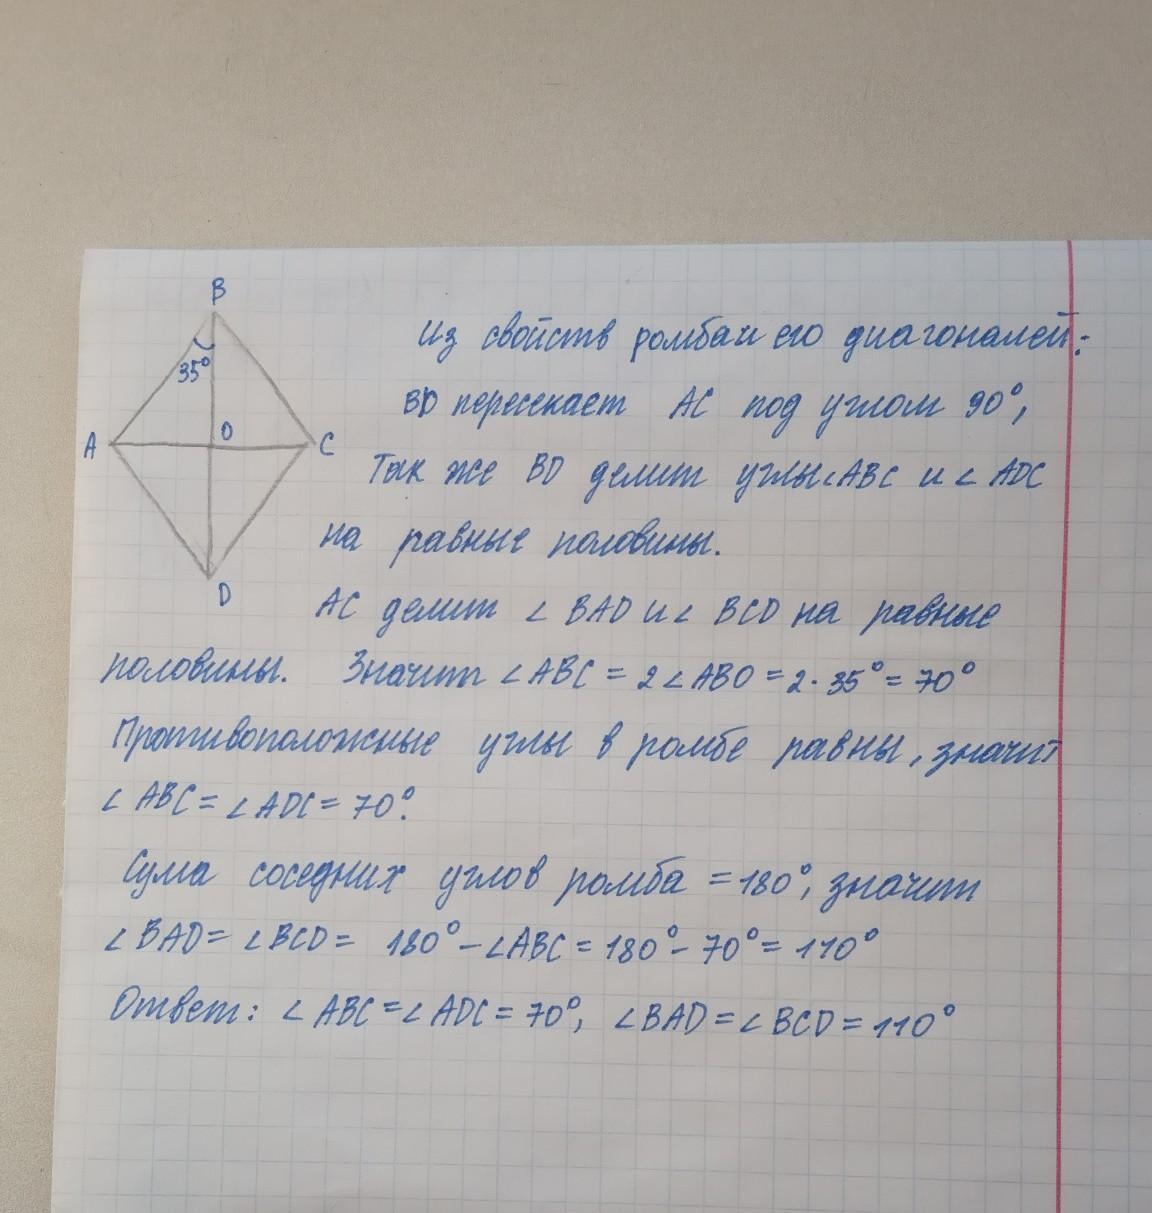 B
35°
A
O
C
D
Из свойств ромба и его диагоналей:
BD пересекает AC под углом 90°,
Так же BD делит углы ∠ABC и ∠ADC
на равные половины.
AC делит ∠BAD и ∠BCD на равные
половины. Значит ∠ABC = 2∠ABO = 2·35° = 70°
Противоположные углы в ромбе равны, значит
∠ABC = ∠ADC = 70°.
Сума соседних углов ромба = 180°, значит
∠BAD = ∠BCD = 180° - ∠ABC = 180° - 70° = 110°
Ответ: ∠ABC = ∠ADC = 70°, ∠BAD = ∠BCD = 110°